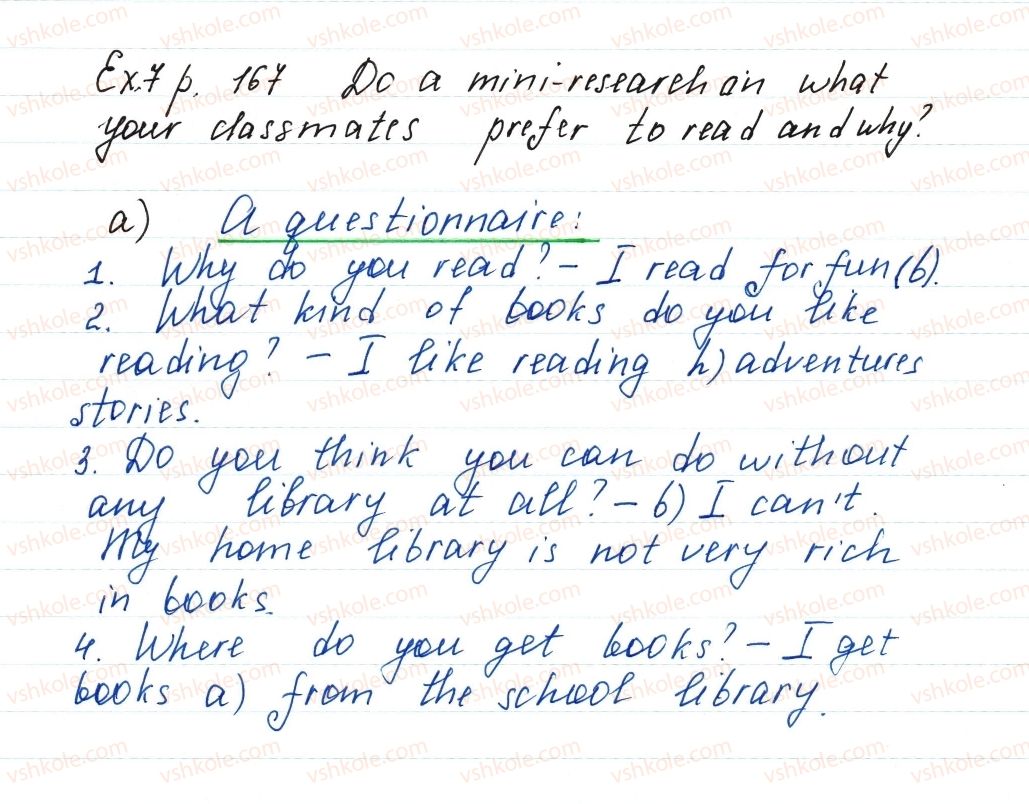 Ex.7 p. 167 Do a mini-research on what
your classmates prefer to read and why?
a) A questionnaire:
1. Why do you read? – I read for fun (b).
2. What kind of books do you like
reading? – I like reading h) adventures
stories.
3. Do you think you can do without
any library at all? – b) I can't.
My home library is not very rich
in books.
4. Where do you get books? – I get
books a) from the school library.